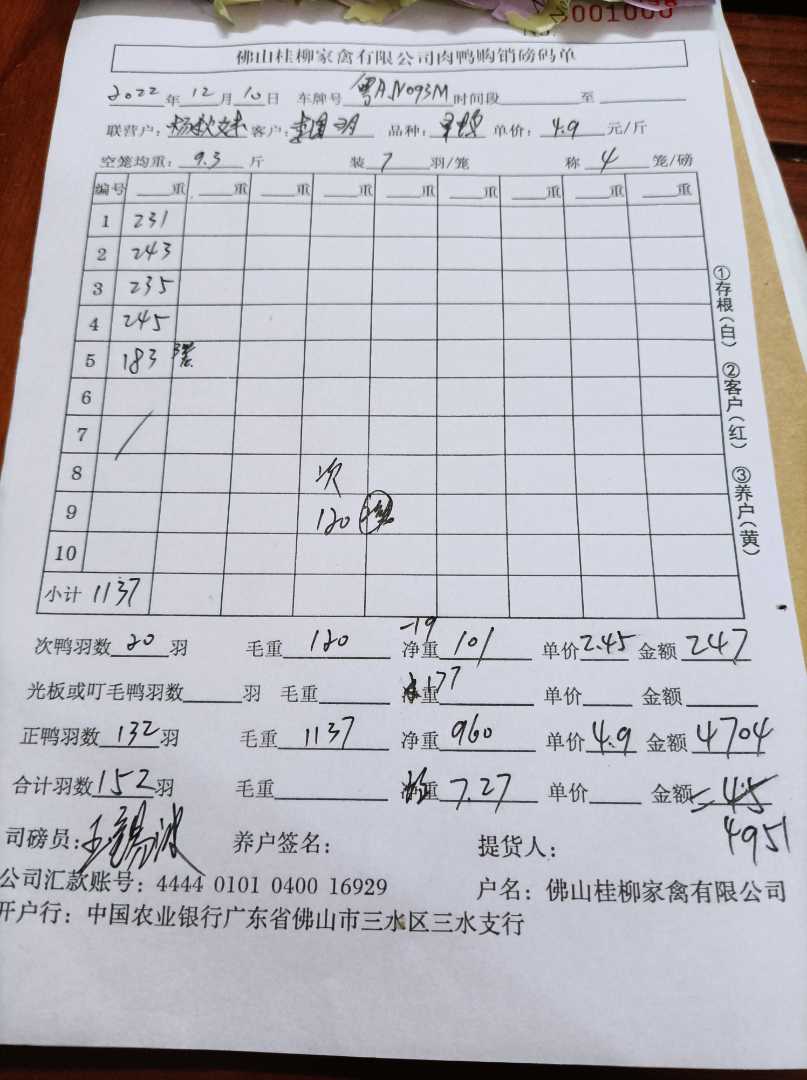 3001000
No.
佛山桂柳家禽有限公司肉鸭购销磅码单
2022 年 12 月 10 日 车牌号 粤A N093M 时间段 至
联营户: 客户: 品种: 单价: 4.9 元/斤
空笼均重: 9.3 斤 装 7 羽/笼 称 4 笼/磅
编号 重 重 重 重 重 重 重 重
1 231
2 243
3 235
4 245
5 183
6
7 /
8 次
9 120
10
小计 1137
①存根(白) ②客户(红) ③养户(黄)
-19
次鸭羽数 20 羽 毛重 120 净重 101 单价 2.45 金额 247
光板或叮毛鸭羽数 羽 毛重 净重 177 单价 金额
正鸭羽数 132 羽 毛重 1137 净重 960 单价 4.9 金额 4704
合计羽数 152 羽 毛重 净重 7.27 单价 金额 45
4951
司磅员: 王锡波 养户签名: 提货人:
公司汇款账号: 4444 0101 0400 16929 户名: 佛山桂柳家禽有限公司
开户行: 中国农业银行广东省佛山市三水区三水支行